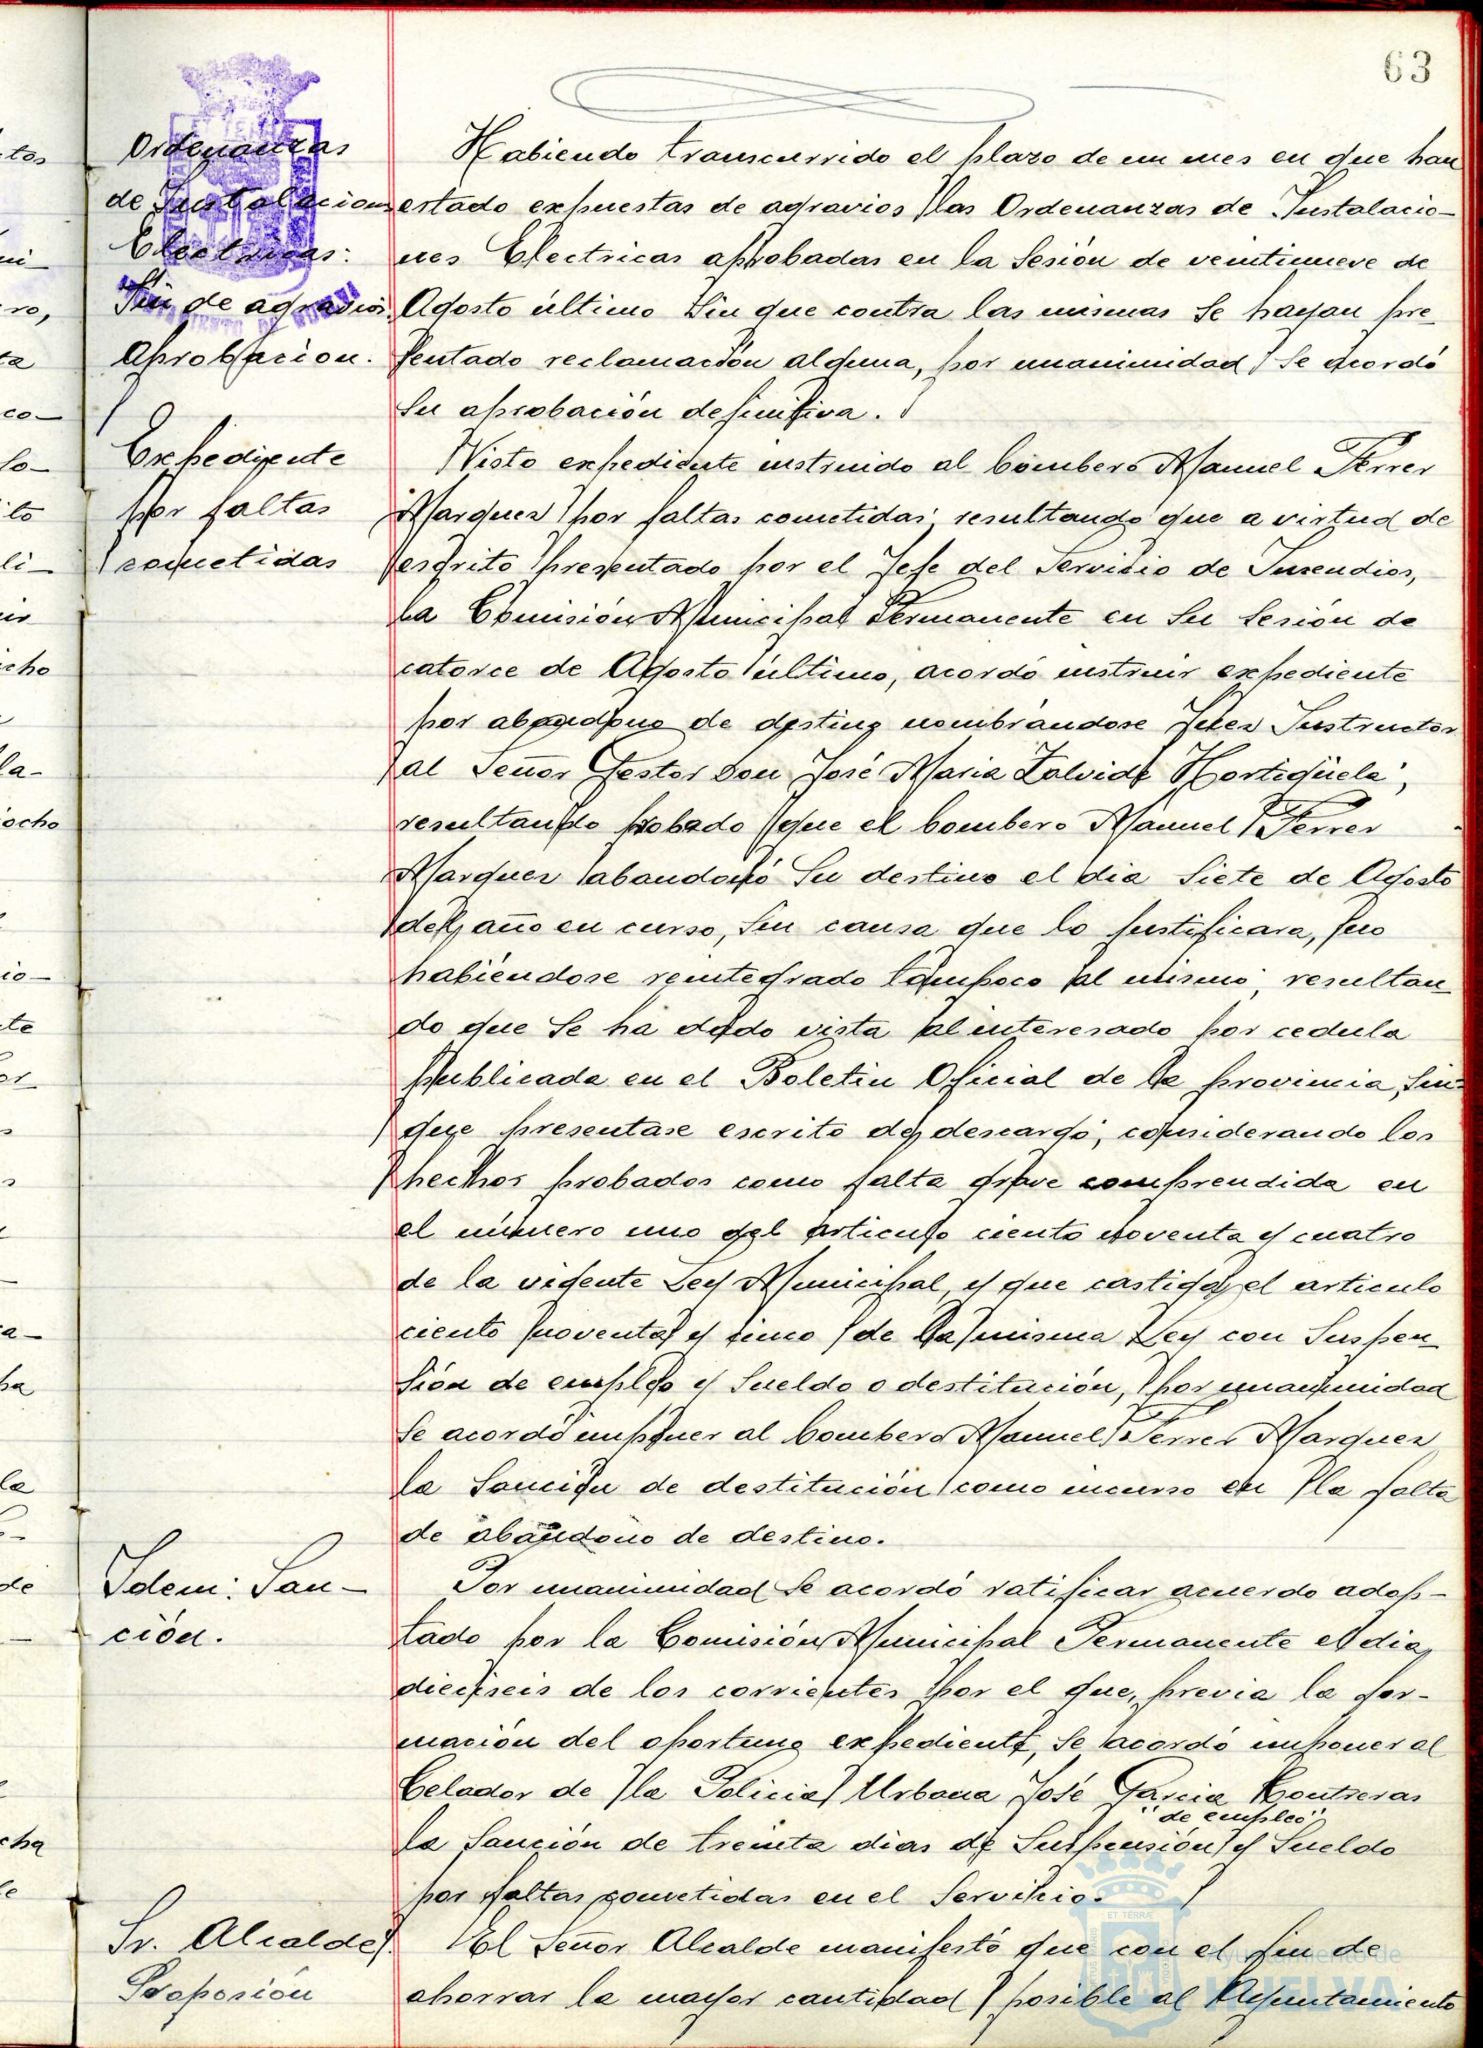 63
Ordenanzas
de Instalaciones
Electricas:
Fin de agravios.
Aprobacion.
Habiendo transcurrido el plazo de un mes en que han
estado expuestas de agravios las Ordenanzas de Instalacio-
nes Electricas aprobadas en la Sesión de veintinueve de
Agosto último Sin que contra las mismas Se hayan pre-
sentado reclamación alguna, por unanimidad Se acordó
Su aprobación definitiva.
Expediente
por faltas
cometidas
Visto expediente instruido al bombero Manuel Ferrer
Marquez por faltas cometidas; resultando que a virtud de
escrito presentado por el Jefe del Servicio de Incendios,
la Comisión Municipal Permanente en Su Sesión de
catorce de Agosto último, acordó instruir expediente
por abandono de destino nombrandose Juez Instructor
al Señor Gestor Don José Maria Zalvide Hortigüela;
resultando probado que el bombero Manuel Ferrer
Marquez abandonó Su destino el dia Siete de Agosto
del año en curso, Sin causa que lo justificara, no
habiéndose reintegrado tampoco al mismo; resultan-
do que Se ha dado vista al interesado por cedula
publicada en el Boletin Oficial de la provincia, Sin
que presentase escrito de descargo; considerando los
hechos probados como falta grave comprendida en
el número uno del articulo ciento noventa y cuatro
de la vigente Ley Municipal, y que castiga el articulo
ciento noventa y cinco de la misma Ley con Suspen-
sión de empleo y Sueldo o destitución, por unanimidad
Se acordó imponer al bombero Manuel Ferrer Marquez
la Sanción de destitución como incurso en la falta
de abandono de destino.
Idem: San-
ción.
Por unanimidad Se acordó ratificar acuerdo adop-
tado por la Comisión Municipal Permanente el dia
dieciseis de los corrientes por el que, previa la for-
mación del oportuno expediente, Se acordó imponer al
Celador de la Policia Urbana José Garcia Contreras
"de empleo"
la Sanción de treinta dias de Suspensión y Sueldo
por faltas cometidas en el Servicio.
Sr. Alcalde.
Proposión
El Señor Alcalde manifestó que con el fin de
ahorrar la mayor cantidad posible al Ayuntamiento
Ayuntamiento de
HUELVA